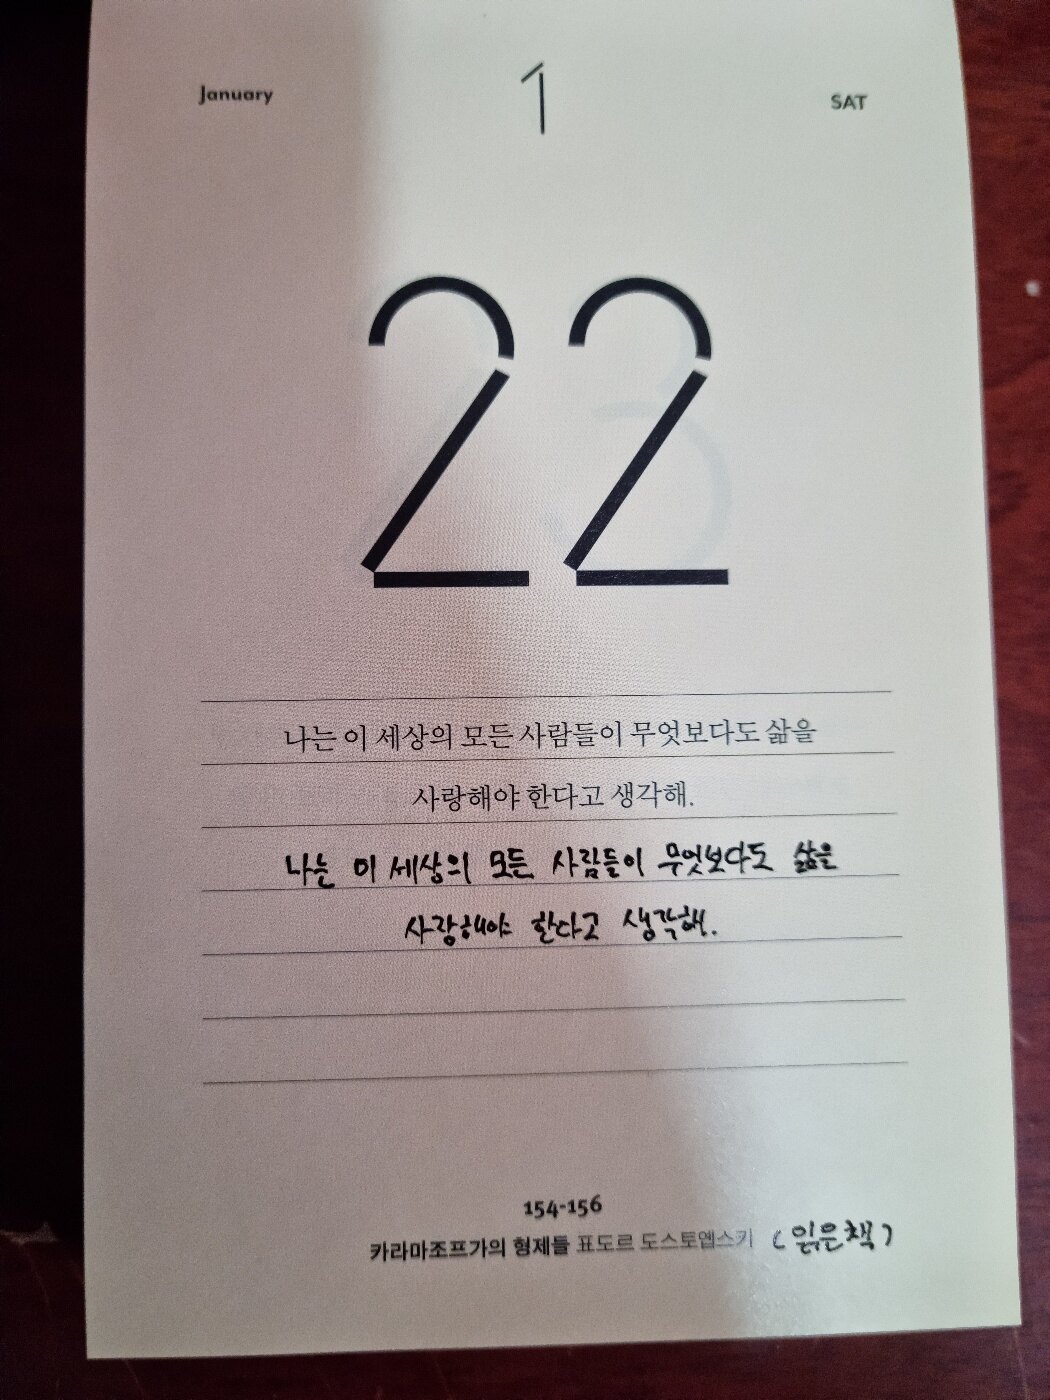 January 1 SAT
22
나는 이 세상의 모든 사람들이 무엇보다도 삶을
사랑해야 한다고 생각해.
나는 이 세상의 모든 사람들이 무엇보다도 삶을
사랑해야 한다고 생각해.
154-156
카라마조프가의 형제들 표도르 도스토옙스키 (읽은책)